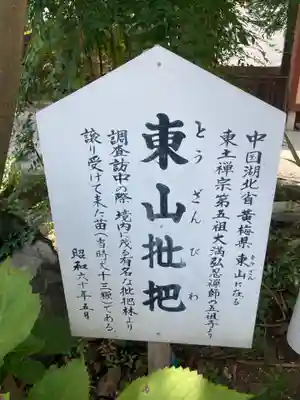 中国湖北省黄梅県東山に在る
とうざん
東土禅宗第五祖大満弘忍禅師の五祖寺より
東山枇杷
とうざんびわ
調査訪中の際境内に茂る有名な枇杷林より
譲り受けて来た苗(当時丈十三糎)である。
昭和六十年五月